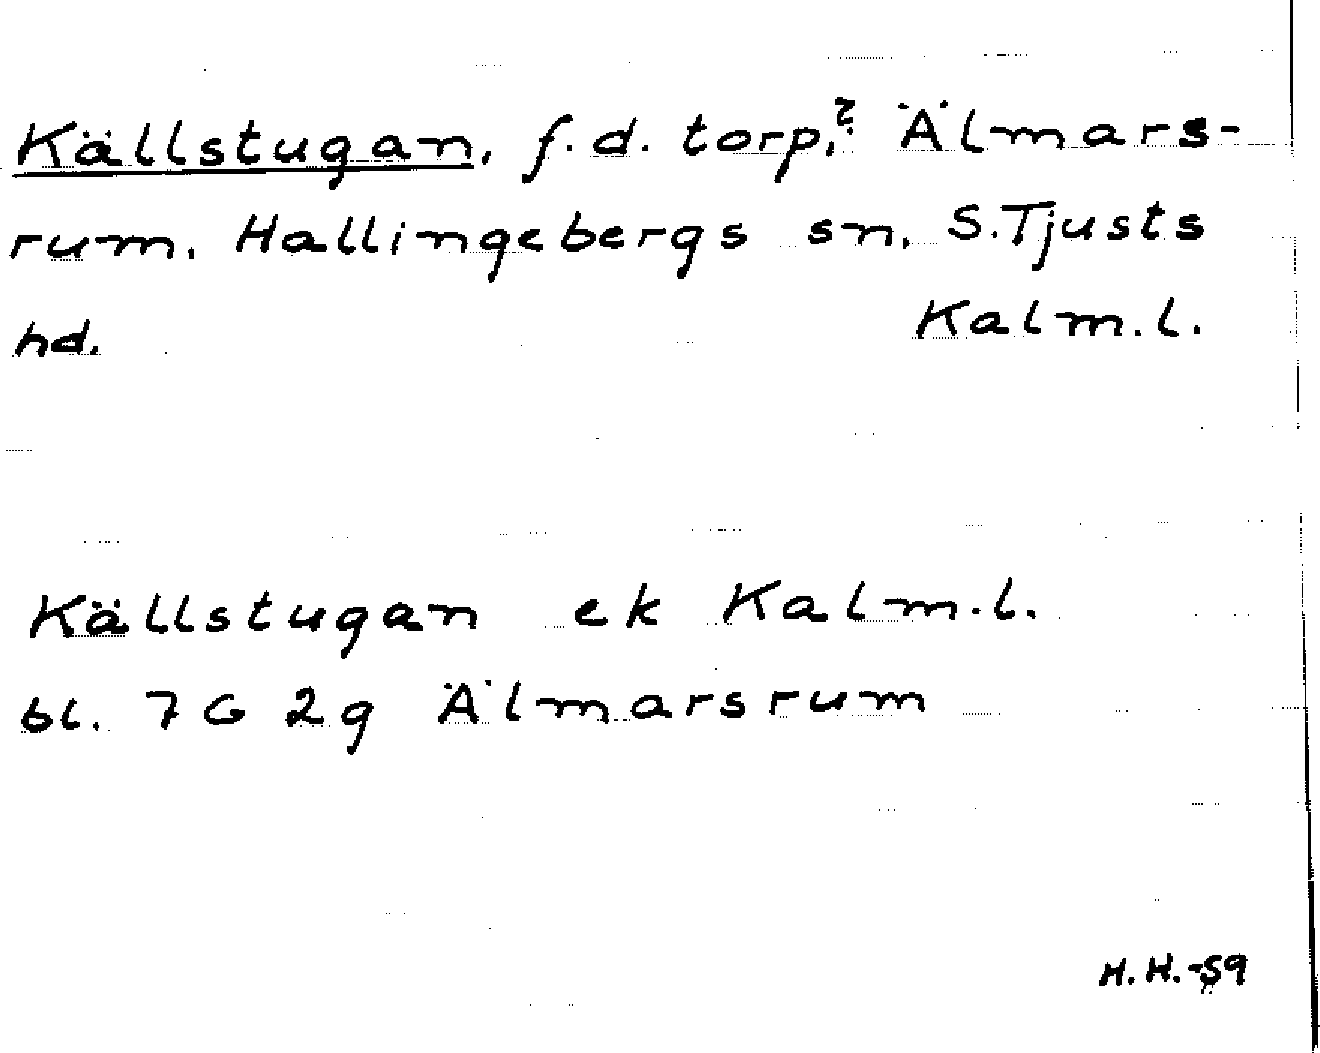 Källstugan, f.d. torp,? Älmars-
rum. Hallingebergs sn, S.Tjusts
hd. Kalm.l.
Källstugan ek Kalm.l.
bl. 7 G 2g Älmarsrum
H.H.-59